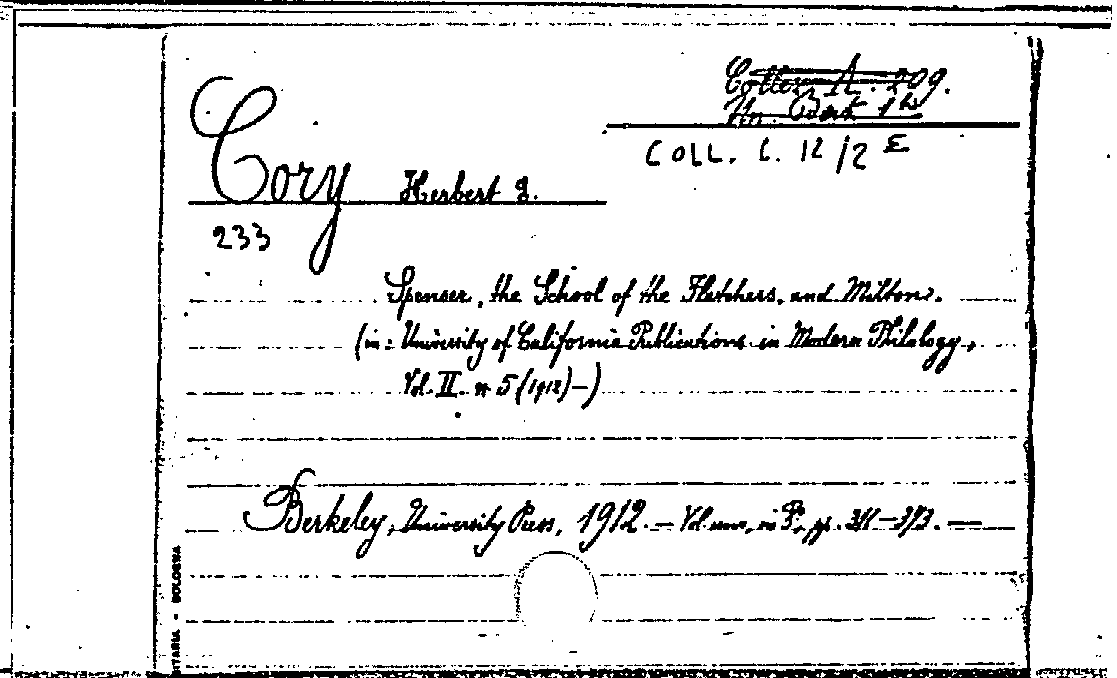 Collez. A. 209.
Un. Berk 1 bis
COLL. C. 12/2 E
Cory Herbert E.
233
Spenser, the School of the Fletchers, and Milton.
(in: University of California Publications in Modern Philology,
Vol. II. n. 5 (1912) -)
Berkeley, University Press, 1912. — Vol. uno, in 8º, pp. 311-373. —
BOLOGNA